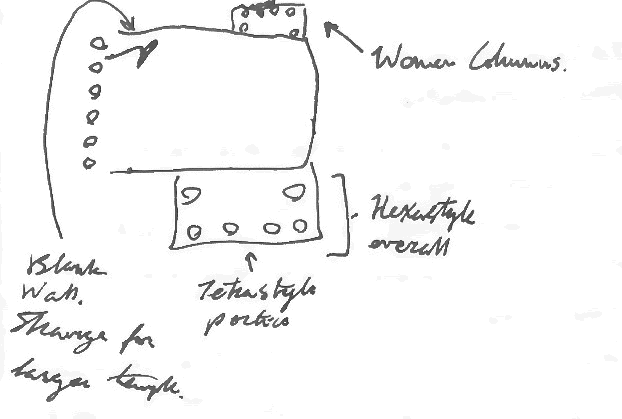 Women Columns.
Hexastyle
overall
Tetrastyle
portico
Blank
Wall.
Strange for
larger temple.